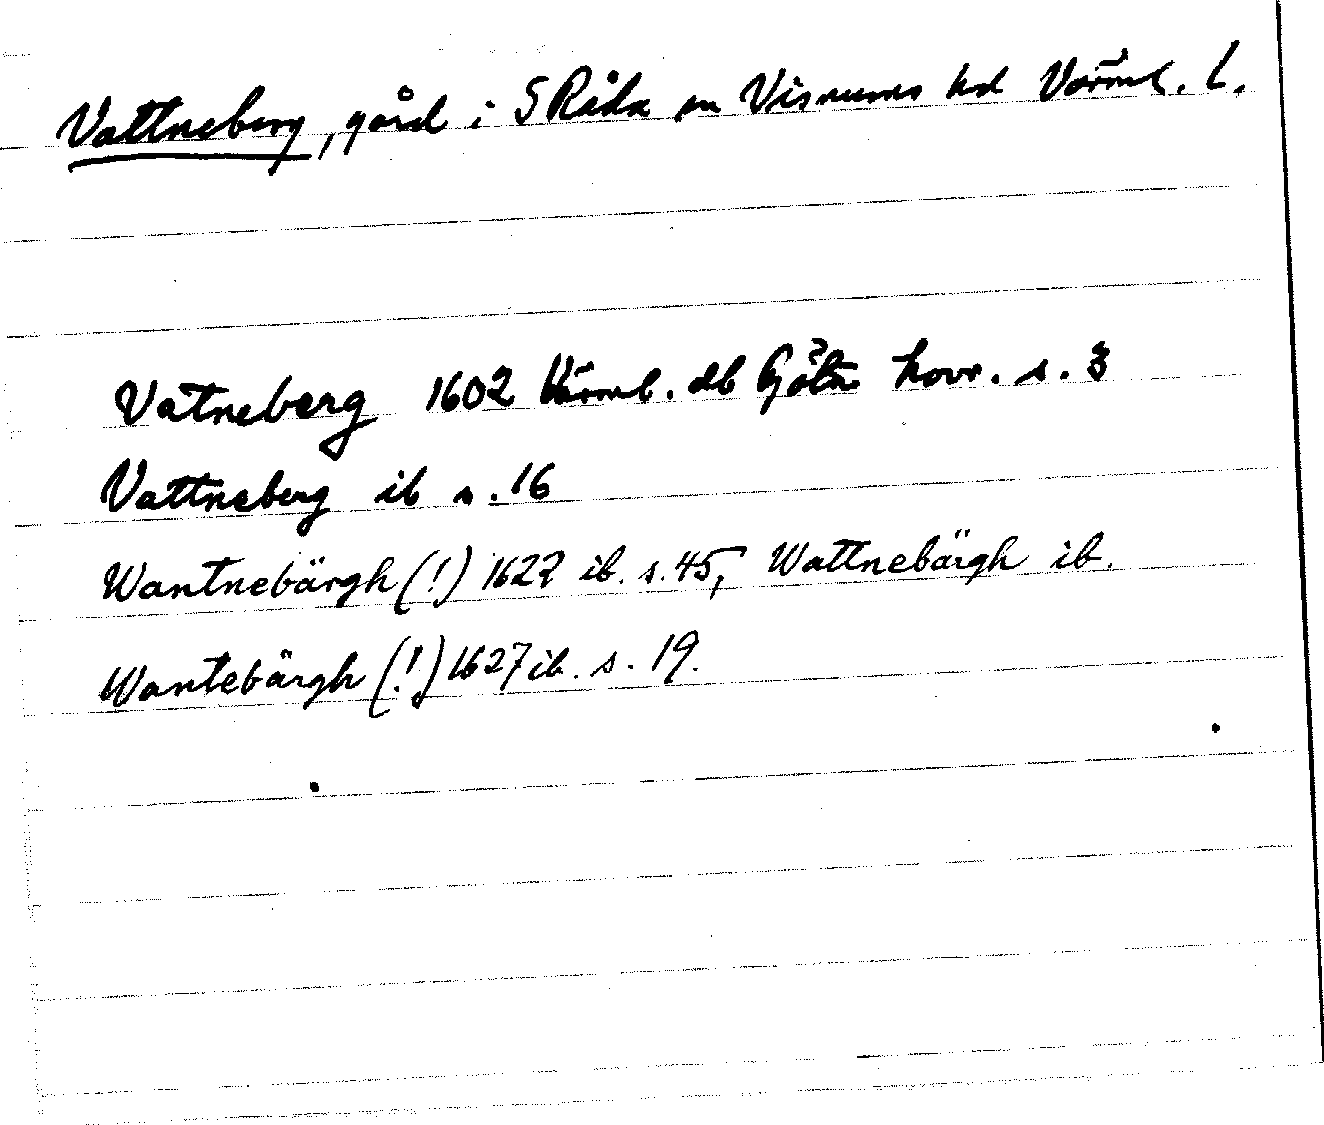 Vattneberg, gård i S Råda sn Visnums hd Värml. l.
Vatneberg 1602 Värml. db Göta hovr. s. 3
Vattneberg ib s. 16
Wantnebärgh (!) 1627 ib. s. 45, Wattnebärgh ib.
Wantebärgh (!) 1627 ib. s. 19.